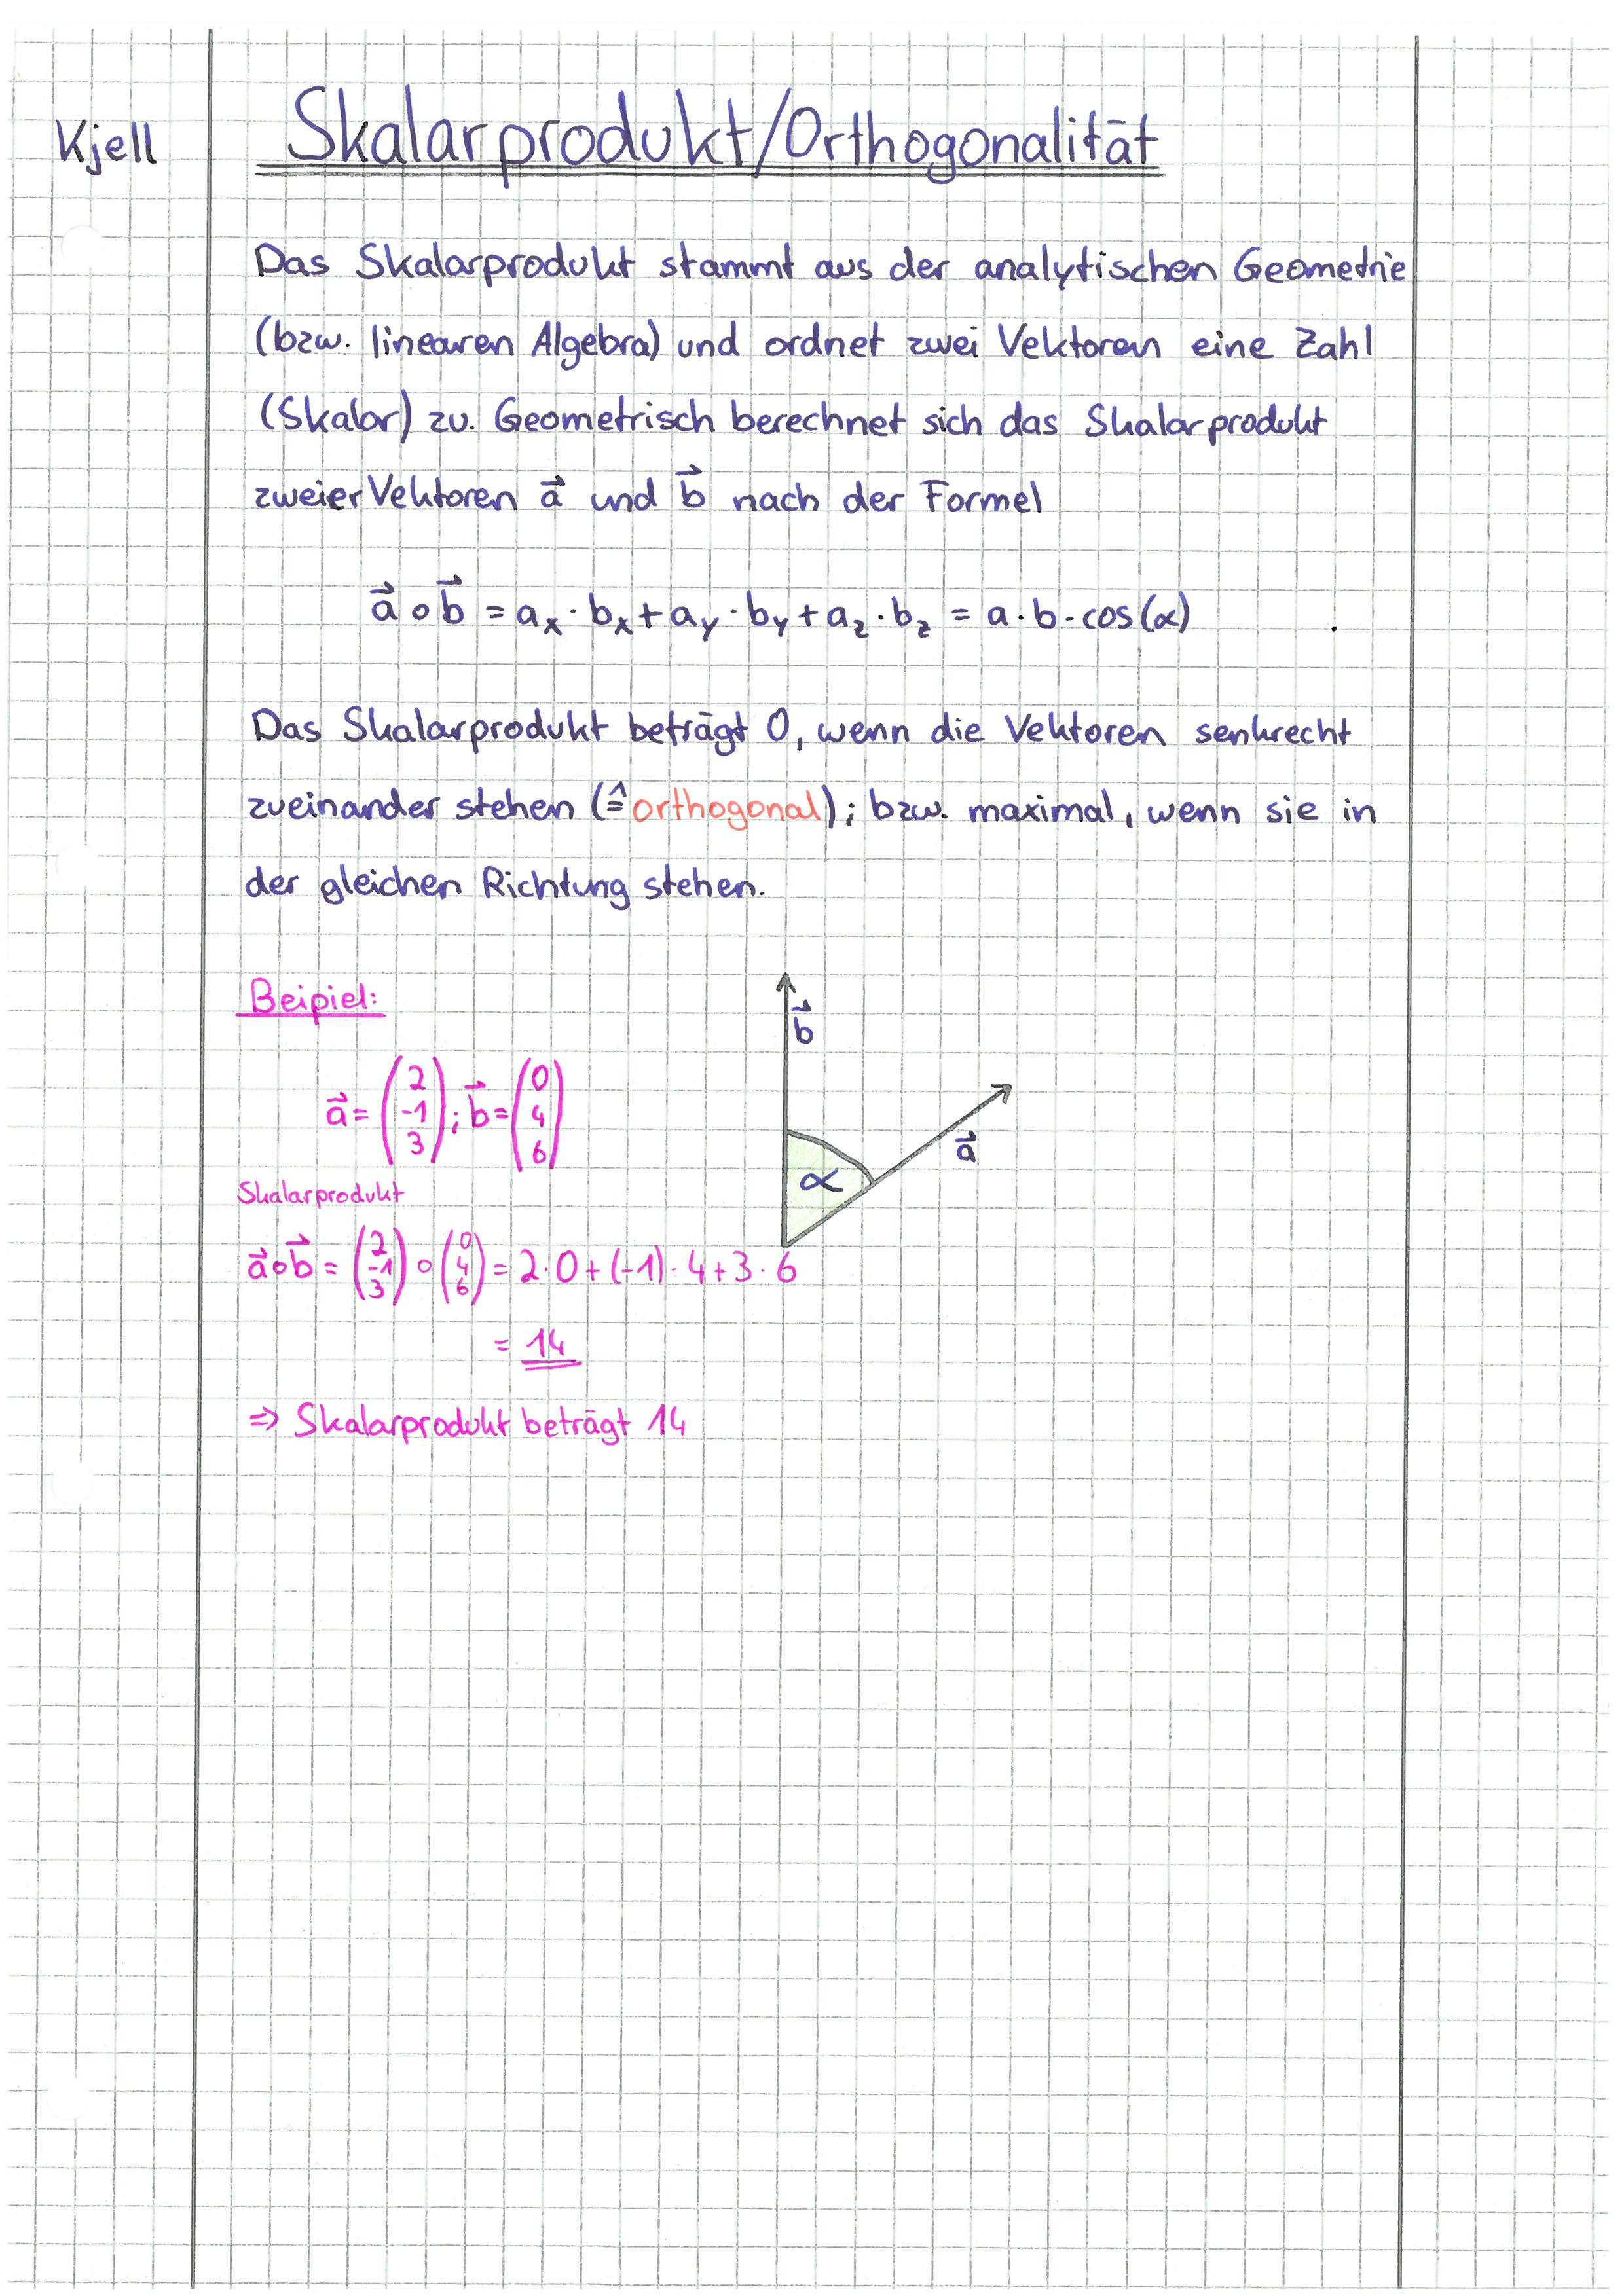 Kjell
Skalarprodukt/Orthogonalität
Das Skalarprodukt stammt aus der analytischen Geometrie
(bzw. linearen Algebra) und ordnet zwei Vektoren eine Zahl
(Skalar) zu. Geometrisch berechnet sich das Skalarprodukt
zweier Vektoren a⃗ und b⃗ nach der Formel
a⃗ ∘ b⃗ = aₓ · bₓ + a_y · b_y + a_z · b_z = a · b · cos(α)
Das Skalarprodukt beträgt 0, wenn die Vektoren senkrecht
zueinander stehen (≙ orthogonal); bzw. maximal, wenn sie in
der gleichen Richtung stehen.
Beipiel:
a⃗ = (2 -1 3) ; b⃗ = (0 4 6)
Skalarprodukt
a⃗ ∘ b⃗ = (2 -1 3) ∘ (0 4 6) = 2·0 + (-1)·4 + 3·6
= 14
⇒ Skalarprodukt beträgt 14
b⃗
a⃗
α